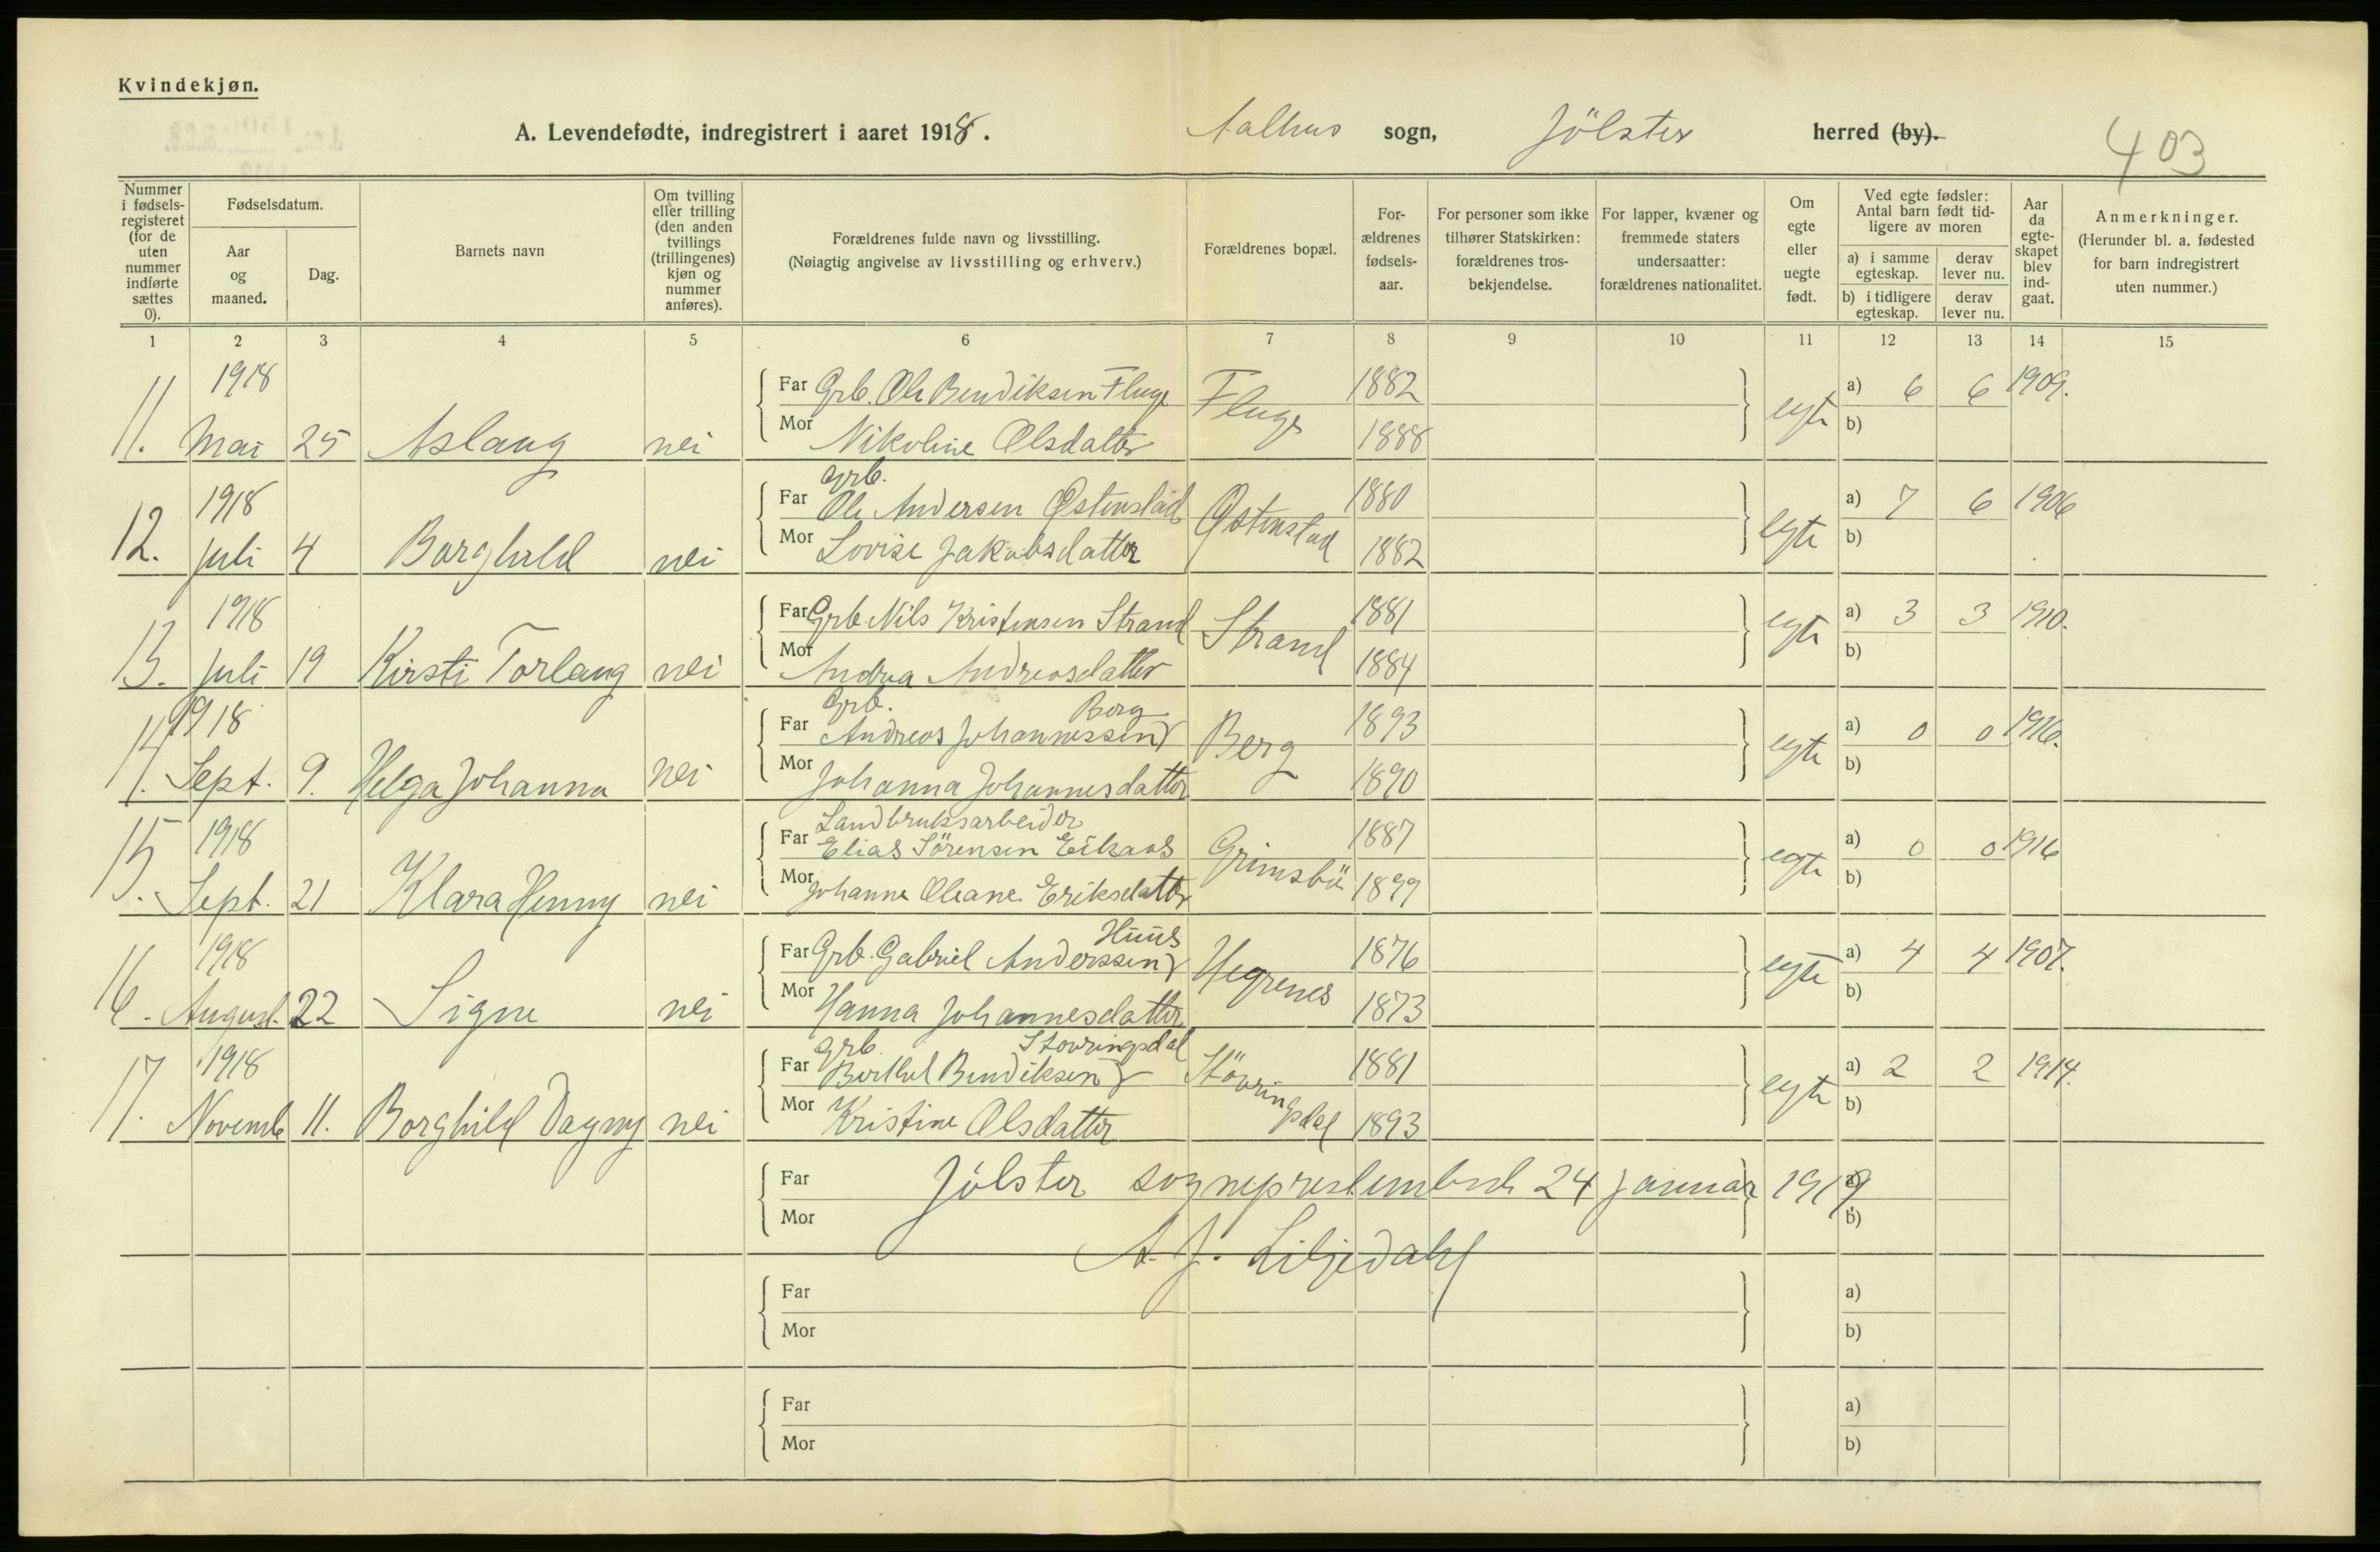 Kvindekjøn.
A. Levendefødte, indregistrert i aaret 1918. Aalhus sogn, Jölster herred (by).
403
Nummer i fødsels-registeret (for de uten nummer indførte sættes 0).
Fødselsdatum.
Aar og maaned.
Dag.
Barnets navn
Om tvilling eller trilling (den anden tvillings (trillingenes) kjøn og nummer anføres).
Forældrenes fulde navn og livsstilling.
(Nøiagtig angivelse av livsstilling og erhverv.)
Forældrenes bopæl.
For-ældrenes fødsels-aar.
For personer som ikke tilhører Statskirken: forældrenes tros-bekjendelse.
For lapper, kvæner og fremmede staters undersaatter: forældrenes nationalitet.
Om egte eller uegte født.
Ved egte fødsler: Antal barn født tid-ligere av moren
a) i samme egteskap.
derav lever nu.
b) i tidligere egteskap.
derav lever nu.
Aar da egte-skapet blev ind-gaat.
Anmerkninger.
(Herunder bl. a. fødested for barn indregistrert uten nummer.)
1 2 3 4 5 6 7 8 9 10 11 12 13 14 15
1918 Far Grb. Ole Bendiksen Fluge Fluge 1882 egte a) 6 6 1909.
11. Mai 25 Aslaug nei Mor Nikoline Olsdatter 1888 b)
Grb.
1918 Far Ole Andersen Østenstad Østenstad 1880 egte a) 7 6 1906
12. Juli 4 Borghild nei Mor Lovise Jakobsdatter 1882 b)
1918 Far Grb. Nils Kristensen Strand Strand 1881 egte a) 3 3 1910.
13. Juli 19 Kirsti Torlaug nei Mor Andrea Andreasdatter 1884 b)
Grb. Berg
1918 Far Andreas Johannessen Berg 1893 egte a) 0 0 1916.
14. Sept. 9. Helga Johanna nei Mor Johanna Johannesdatter 1890 b)
Landbruksarbeider
1918 Far Elias Sörensen Eikaas Grimsbö 1887 egte a) 0 0 1916
15. Sept. 21 Klara Henny nei Mor Johanne Oleane Eriksdatter 1899 b)
Huus
1918 Far Grb. Gabriel Anderssen Hegrenes 1876 egte a) 4 4 1907.
16. August 22 Signe nei Mor Hanna Johannesdatter 1873 b)
Grb. Stovringsdal
1918 Far Berthel Bendiksen Stövringsdal 1881 egte a) 2 2 1914.
17. Novemb 11. Borghild Dagny nei Mor Kristine Olsdatter 1893 b)
Far Jölster sogneprestembede 24 januar 1919 a)
Mor b)
A. J. Liljedahl
Far a)
Mor b)
Far a)
Mor b)